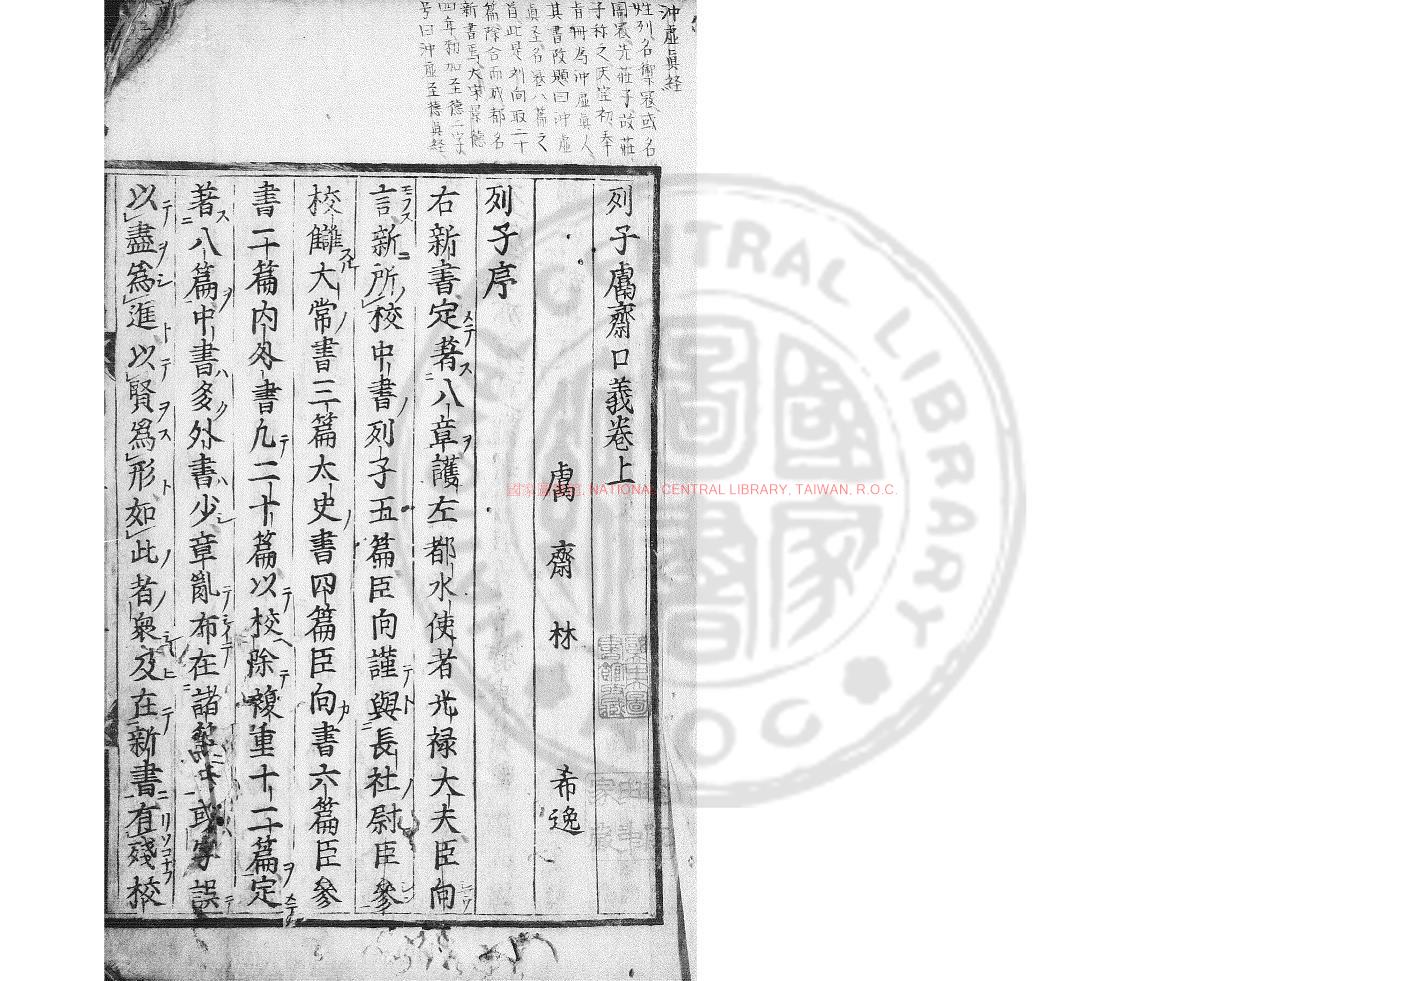 沖虛眞経
姓列名禦寇或名
圄寇先莊子故莊
子称之天宝初奉
旨冊爲沖虛眞人
其書改題曰沖虛
眞経名卷八篇之
首此是列向取二十
篇除合而成都名
新書焉大宋景德
四年勅加至德二字
号曰沖虛至德眞経
列子鬳齋口義卷上
鬳齋林希逸
列子序
右新書定著八章護左都水使者光禄大夫臣向
言新所校中書列子五篇臣向謹與長社尉臣參
校讎大常書三篇太史書四篇臣向書六篇臣參
書二十篇内外書凢二十篇以校除複重十二篇定
著八篇中書多外書少章亂布在諸篇中或字誤
以盡爲進以賢爲形如此者衆及在新書有殘校
國家圖書館, NATIONAL CENTRAL LIBRARY, TAIWAN, R.O.C.